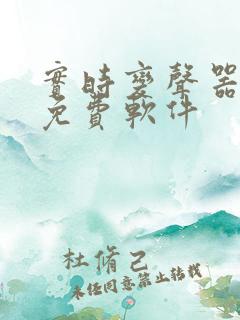 實時变聲器
免費軟件
杜脩己
未经同意禁止转载